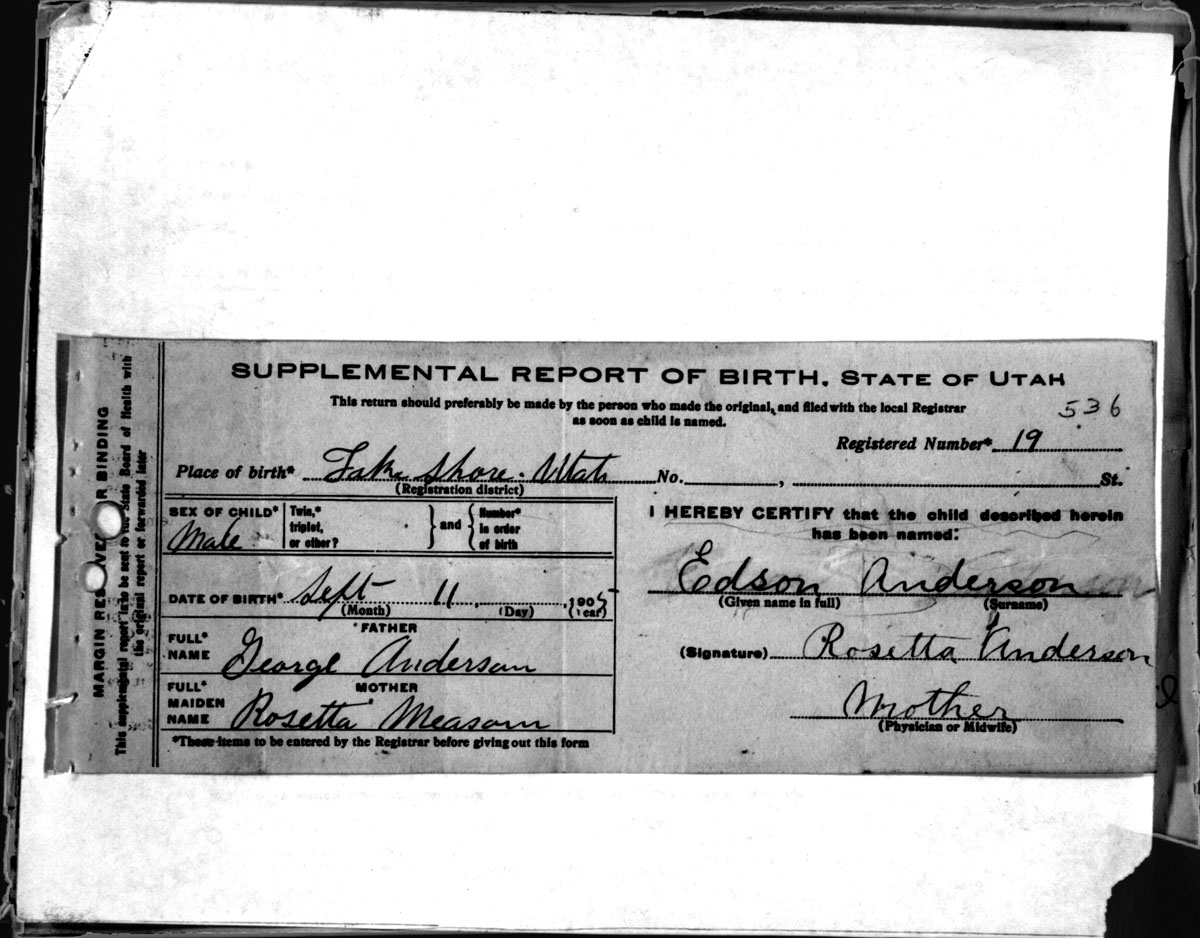 SUPPLEMENTAL REPORT OF BIRTH. STATE OF UTAH
This return should preferably be made by the person who made the original, and filed with the local Registrar
as soon as child is named.
536
Registered Number* 19
Place of birth* Lake Shore. Utah No. , St.
(Registration district)
SEX OF CHILD* Male
Twin,* triplet, or other?
and
Number* in order of birth
DATE OF BIRTH* Sept 11, 1905
(Month) (Day) (Year)
FATHER
FULL* NAME George Anderson
MOTHER
FULL* MAIDEN NAME Rosetta Measom
*These items to be entered by the Registrar before giving out this form
I HEREBY CERTIFY that the child described herein
has been named:
Edson Anderson
(Given name in full) (Surname)
(Signature) Rosetta Anderson
Mother
(Physician or Midwife)
MARGIN RESERVED FOR BINDING
This supplemental report is to be sent to the State Board of Health with
the original report or forwarded later